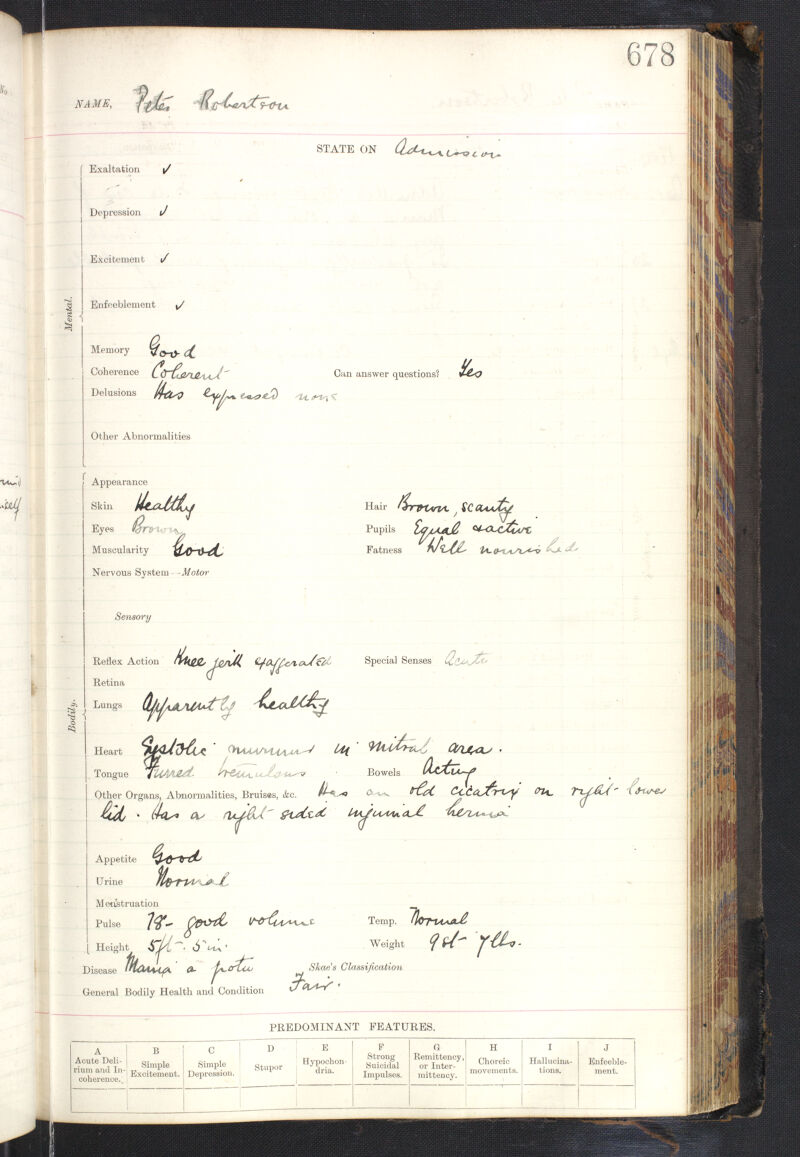 678
NAME, Peter Robertson
STATE ON Admission
Mental.
Exaltation ✓
Depression ✓
Excitement ✓
Enfeeblement ✓
Memory Good
Coherence Coherent Can answer questions? Yes
Delusions Has expressed none
Other Abnormalities
Bodily.
Appearance
Skin Healthy Hair Brown, scanty
Eyes Brown Pupils Equal & active
Muscularity Good Fatness Well nourished
Nervous System—Motor
Sensory
Reflex Action Knee jerk exaggerated Special Senses Acute
Retina
Lungs Apparently healthy
Heart Systolic murmur in mitral area.
Tongue Furred tremulous Bowels Acting
Other Organs, Abnormalities, Bruises, &c. Has an old cicatrix on right lower
lid. Has a right sided inguinal hernia
Appetite Good
Urine Normal
Menstruation
Pulse 78- good volume Temp. Normal
Height 5ft. 5in. Weight 9st 7lbs.
Disease Mania a potu Skae's Classification
General Bodily Health and Condition Fair.
PREDOMINANT FEATURES.
A B C D E F G H I J
Acute Delirium and Incoherence. Simple Excitement. Simple Depression. Stupor Hypochondria. Strong Suicidal Impulses. Remittency, or Intermittency. Choreic movements. Hallucinations. Enfeeblement.